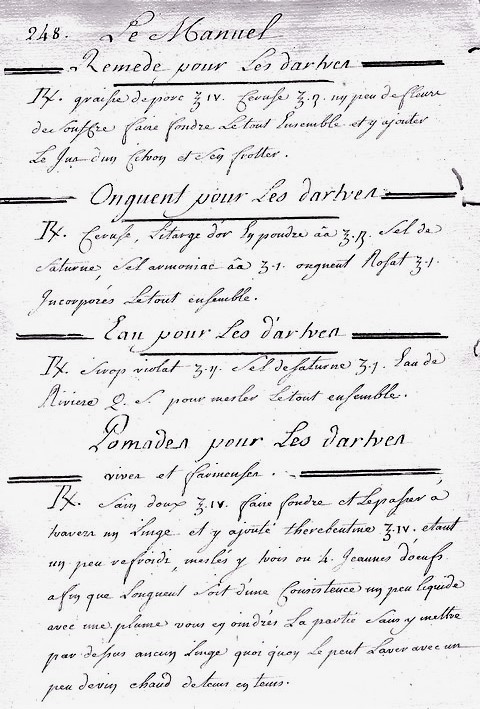 248. Le Manuel
Remede pour Les dartres
℞. graisse de porc ℥ IV. Ceruse ℥ ß. un peu de fleurs
de souffre faire fondre Le tout Ensemble et y ajouter
Le Jus d'un Citron et s'en frotter.
Onguent pour Les dartres
℞. Ceruse, Litarge d'or En poudre ãa ʒ. ß. Sel de
saturne, sel armoniac ãa ʒ. 1. onguent Rosat ʒ. 1.
Incorporés Le tout ensemble.
Eau pour Les dartres
℞. sirop violat ʒ. ij. sel de saturne ʒ. 1. Eau de
Riviere Q. S. pour mesler Le tout ensemble.
Pomades pour Les dartres
vives et farineuses.
℞. Sain doux ℥ IV. faire fondre et Le passer à
travers un Linge et y ajouté therebentine ℥ IV. etant
un peu refroidi, meslés y trois ou 4. Jeaunes d'oeufs
afin que Longuent soit d'une Consistence un peu liquide
avec une plume vous en oindrés La partie sans y mettre
par dessus aucun Linge quoi quon Le peut Laver avec un
peu de vin chaud de tems en tems.